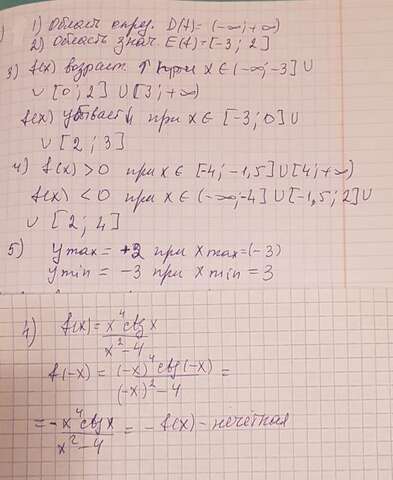 1) Област опред. D(f)= (-∞; +∞)
2) Область знач. E(f)=[-3; 2]
3) f(x) возраст. ↑ при x∈(-∞;-3]∪
∪ [0; 2] ∪[3; +∞)
f(x) убывает↓ при x∈ [-3; 0]∪
∪ [2; 3]
4) f(x) >0 при x∈ [-4; -1,5]∪[4; +∞)
f(x) <0 при x∈ (-∞;-4]∪[-1,5; 2]∪
∪ [2; 4]
5) y max = +2 при x max=(-3)
y min = -3 при x min = 3
4) f(x)= x⁴ctg x / x²-4
f(-x) = (-x)⁴ctg(-x) / (-x)²-4 =
= -x⁴ctg x / x²-4 = - f(x) - нечетная